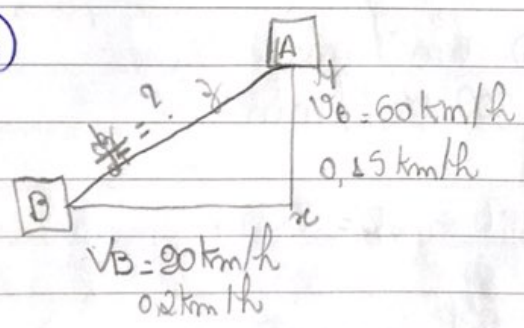 A
z
= ?
y
V6 = 60 km/h
0,15 km/h
B
x
VB = 90 km/h
0,2 km/h